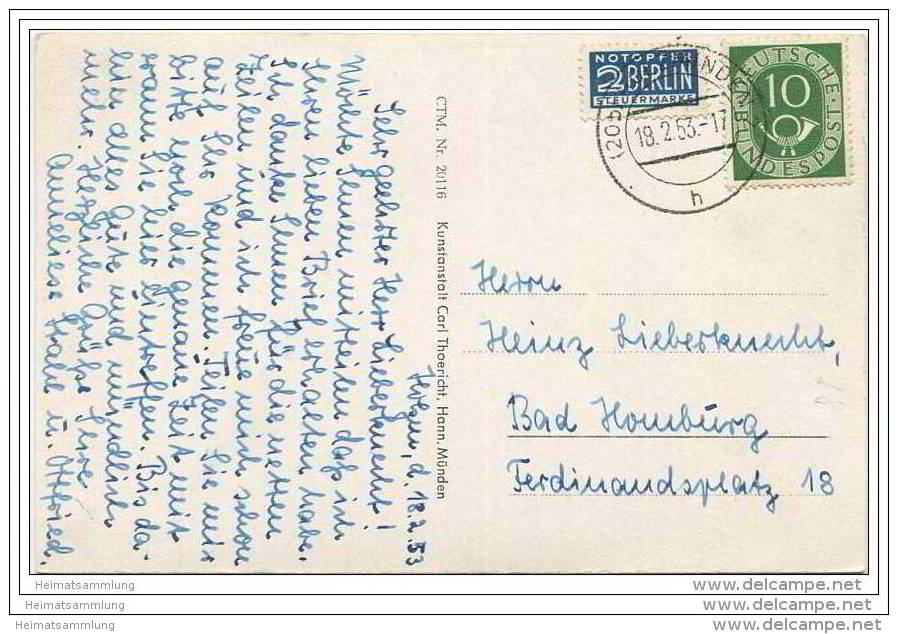 NOTOPFER
2 BERLIN
STEUERMARKE
DEUTSCHE
10
BUNDESPOST
(20
18.2.53.-17
h
CTM. Nr. 20116 Kunstanstalt Carl Thoericht, Hann. Münden
d. 18.2.53
Sehr geehrter Herr Lieberknecht!
Möchte Ihnen mitteilen daß ich
Ihren lieben Brief erhalten habe.
Ich danke Ihnen für die netten
Zeilen und ich freue mich schon
auf Ihr Kommen. Teilen Sie mir
bitte noch die genaue Zeit mit
wann Sie hier eintreffen. Bis da-
hin alles Gute und mündlich
mehr. Herzliche Grüße Ihre
Anneliese u. Ottfried.
Herrn
Heinz Lieberknecht,
Bad Homburg
Ferdinandsplatz 18
Heimatsammlung
Heimatsammlung
Heimatsammlung
www.delcampe.net
www.delcampe.net
www.delcampe.net